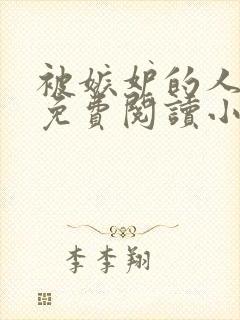 被嫉妒的人
免費閱讀小
李李翔